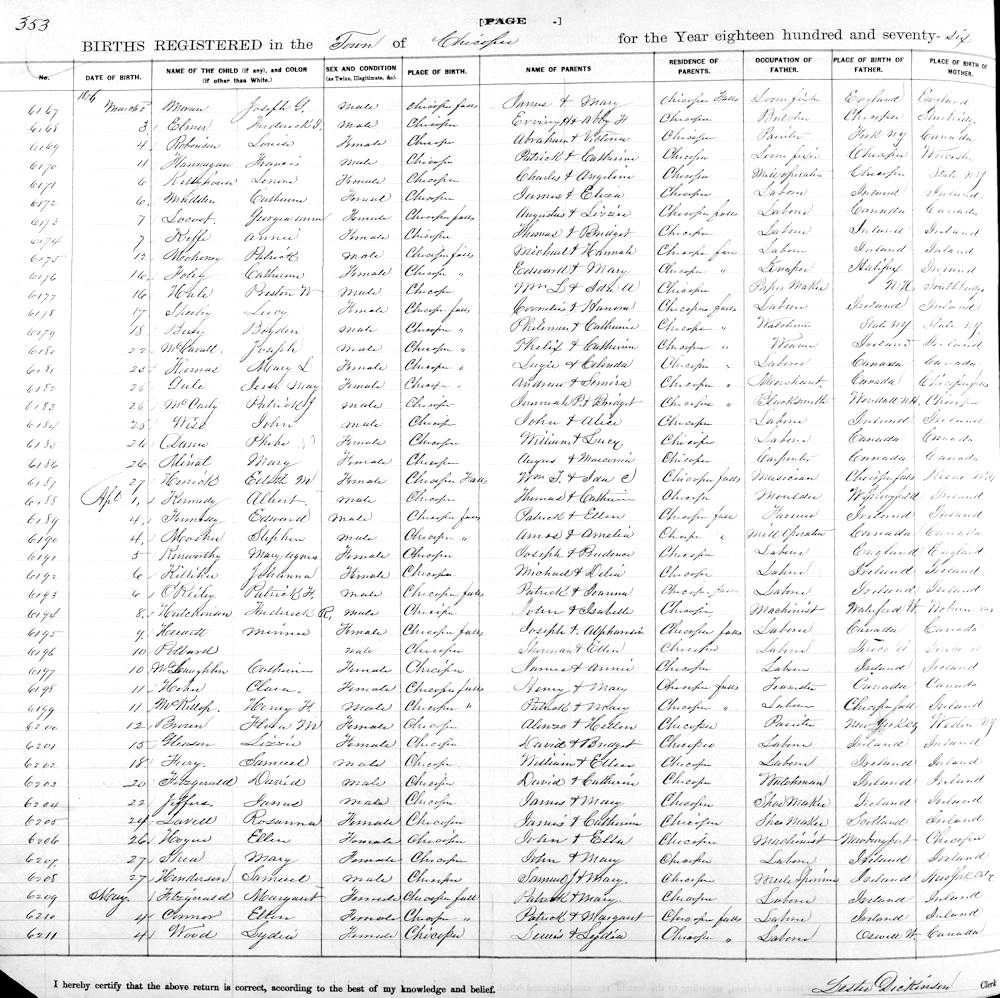 353
[PAGE -]
BIRTHS REGISTERED in the Town of Chicopee for the Year eighteen hundred and seventy-six
No. DATE OF BIRTH. NAME OF THE CHILD (if any), and COLOR (if other than White.) SEX AND CONDITION (as Twins, Illegitimate, &c.) PLACE OF BIRTH. NAME OF PARENTS RESIDENCE OF PARENTS. OCCUPATION OF FATHER. PLACE OF BIRTH OF FATHER. PLACE OF BIRTH OF MOTHER.
1876
6167 March 2 Moran Joseph G. Male Chicopee falls James & Mary Chicopee Falls Loom fixer England England
6168 3 Elmer Frederick D. Male Chicopee Erving H & Abby H Chicopee Butcher Chicopee
6169 4 Robinson Louise Female Chicopee Abraham & Victoria Chicopee Painter NY Canada
6170 4 Flannagan Francis Male Chicopee Patrick & Catherine Chicopee Loom fixer Chicopee
6171 6 Lenora Female Chicopee Charles & Angeline Chicopee Mill operative Chicopee State NY
6172 6 Madden Catherine Female Chicopee James & Eliza Chicopee Labore Ireland Ireland
6173 7 Locast Georgianna Female Chicopee falls Augustus & Lizzie Chicopee falls Labore Canada Canada
6174 7 Keffe Annie Female Chicopee Thomas & Bridget Chicopee Labore Ireland Ireland
6175 12 Mahoney Patrick Male Chicopee falls Michael & Hannah Chicopee falls Labore Ireland Ireland
6176 16 Foley Catherine Female Chicopee " Edward & Mary Chicopee " Halifax Ireland
6177 16 Hale Preston W Male Chicopee Wm L & Ida A Chicopee Paper Maker N H Southbridge
6178 17 Sheehy Lucy Female Chicopee falls Cornelius & Hanora Chicopee falls Labore Ireland Ireland
6179 18 Boyden Male Chicopee " Philemon & Catherine Chicopee " Watchman State NY State NY
6180 22 Joseph Male Chicopee " Phelix & Catherine Chicopee " Weaver Ireland Ireland
6181 25 Mary L Female Chicopee " & Chicopee " Labore Canada Canada
6182 26 Gale May Female Chicopee " Andrew & Chicopee " Merchant Canada Chicopee falls
6183 26 McCarty Patrick J Male Chicopee Jeremiah P & Bridget Chicopee " Blacksmith N.H. Chicopee
6184 25 Wise John Male Chicopee John & Alice Chicopee Labore Ireland Ireland
6185 26 Phebe Female Chicopee William & Lucy Chicopee Labore Canada Canada
6186 26 Mary Female Chicopee & Chicopee Carpenter Canada Canada
6187 27 Herrick Edith M Female Chicopee Falls Wm T. & Ida C Chicopee falls Musician Chicopee falls
6188 Apl 1 Kennedy Albert Male Chicopee Thomas & Catherine Chicopee Moulder W Springfield Ireland
6189 4 Edward Male Chicopee falls Patrick & Ellen Chicopee falls Farmer Ireland Ireland
6190 4 Stephen Male Chicopee " Amos & Amelia Chicopee " Mill Operative Canada Canada
6191 5 Kenworthy Mary Agnes Female Chicopee Joseph & Prudence Chicopee Labore England England
6192 6 Johanna Female Chicopee Michael & Delia Chicopee Labore Ireland Ireland
6193 6 O'Reiley Patrick H. Male Chicopee falls Patrick & Joanna Chicopee falls Labore Ireland Ireland
6194 8 Hutchinson Frederick R. Male Chicopee John & Isabell Chicopee Machinist
6195 9 Minnie Female Chicopee falls Joseph & Alphonsin Chicopee falls Labore Canada Canada
6196 10 Pollard Male Chicopee Sherman & Ellen Chicopee Labore
6197 10 McLaughlin Catherine Female Chicopee James & Annie Chicopee Labore Ireland Ireland
6198 11 Clara Female Chicopee falls Henry & Mary Chicopee falls Teamster Canada Canada
6199 11 McKillop Henry H Male Chicopee " Patrick & Mary Chicopee " Labore Chicopee fall Ireland
6200 12 Brown M Female Chicopee Alonzo & Hellen Chicopee Painter NY
6201 15 Gleason Lizzie Female Chicopee David & Bridget Chicopee Labore Ireland Ireland
6202 18 Samuel Male Chicopee William & Ellen Chicopee Labore Ireland Ireland
6203 20 Fitzgerald David Male Chicopee David & Catherine Chicopee Watchman Ireland Ireland
6204 22 Jeffers James Male Chicopee James & Mary Chicopee Shoe Maker Ireland Ireland
6205 24 Lavell Rosanna Female Chicopee James & Catherine Chicopee Shoe Maker Scotland Ireland
6206 26 Hogan Ellen Female Chicopee John & Ella Chicopee Machinist Newburyport Chicopee
6207 27 Shea Mary Female Chicopee John & Mary Chicopee Labore Ireland Ireland
6208 27 Henderson Samuel Male Chicopee Samuel & Mary Chicopee Ireland
6209 May Fitzgerald Margaret Female Chicopee fall Patrick & Mary Chicopee Labore Ireland Ireland
6210 4 Connor Ellen Female Chicopee " Patrick & Margaret Chicopee falls Labore Ireland Ireland
6211 4 Wood Lydia Female Chicopee Lewis & Lydia Chicopee " Labore Canada
I hereby certify that the above return is correct, according to the best of my knowledge and belief. Lester Dickinson Clerk